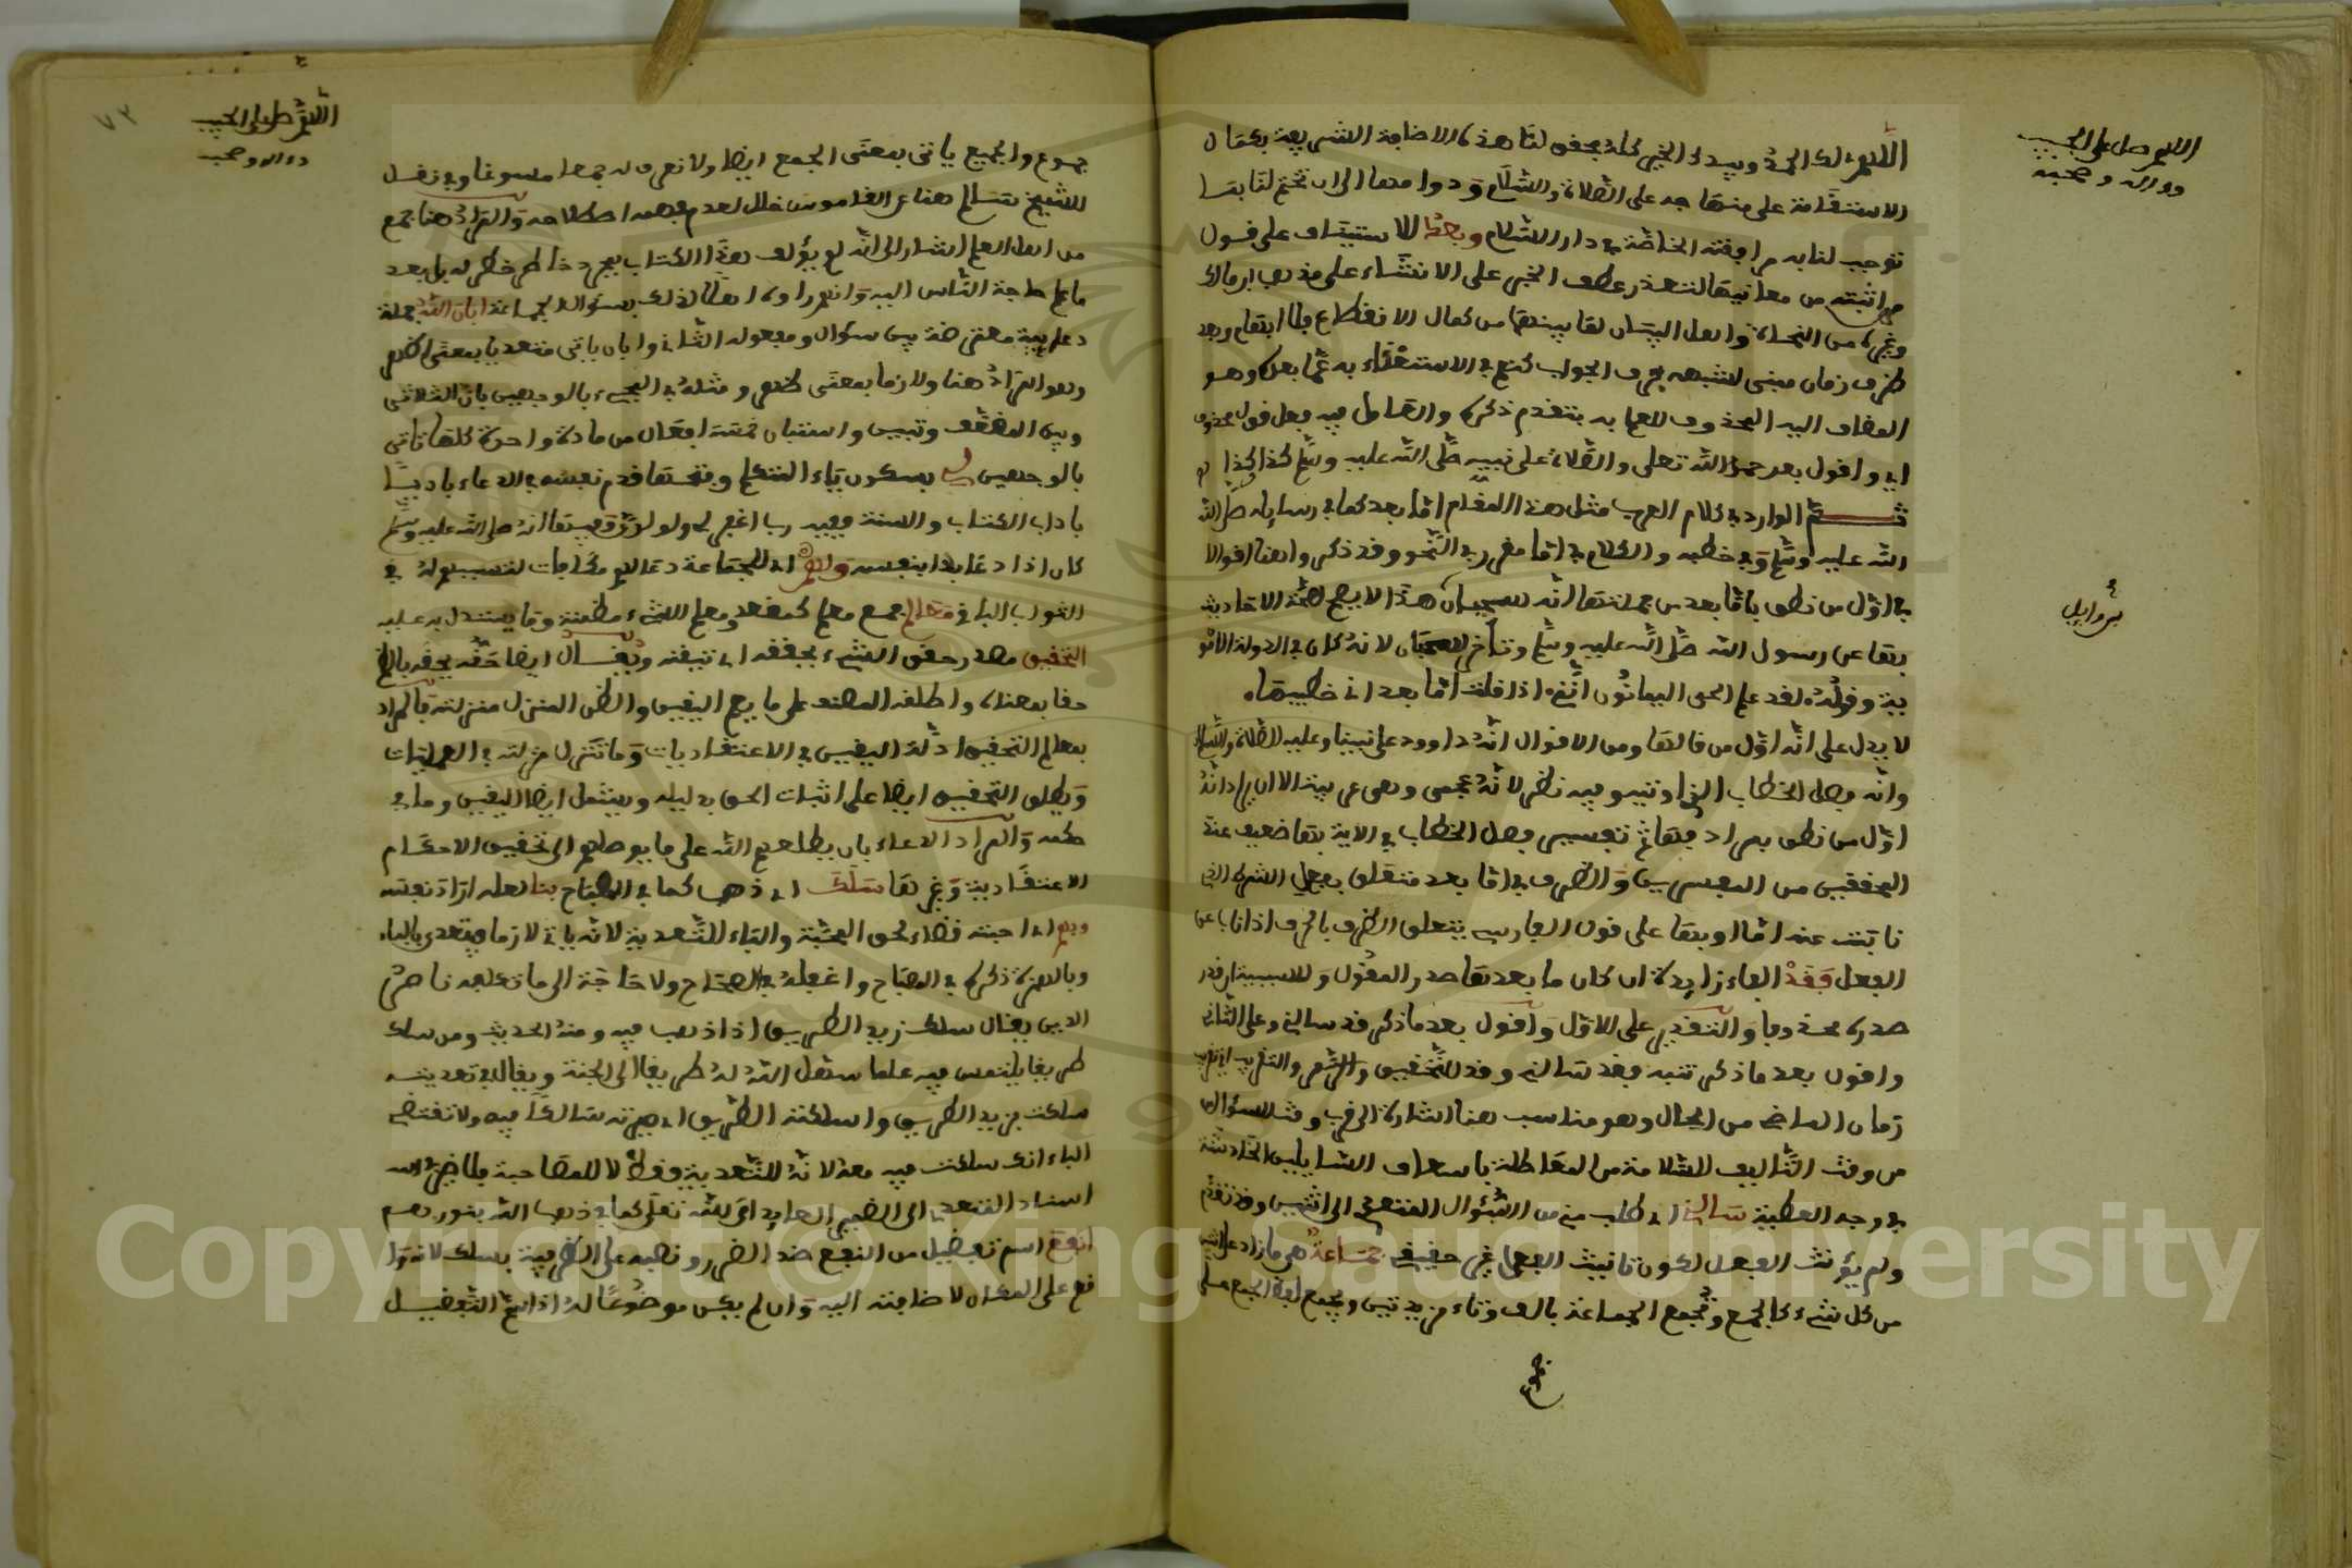 اللهم صل على الحبيب
وءاله وصحبه
اللهم لك الحمد وبيدك الخير كله بحق لنا هذه الاضافة الشريفة بكمال
الاستقامة على منهاجه على الصلاة والسلام ودوامها الى ان تختم لنا بما
توجب لنا به مرافقته الخاصة في دار السلام وبعد للاستيناف على قول
من اثبته من معانيها لتعذر عطف الخبر على الانشاء على مذهب ابن مالك
وغيره من النحاة واهل البيان لما بينهما من كمال الانقطاع بلا ايهام وبعد
ظرف زمان مبني لشبهه بحرف الجواب كنعم في الاستغناء به عما بعده وهو
المضاف اليه المحذوف للعلم به بتقدم ذكره والعامل فيه فعل قول محذوف
اي واقول بعد حمد الله تعلى والصلاة على نبيه صلى الله عليه وسلم كذا وكذا
ثم الوارد في كلام العرب مثل هذا المقام اما بعد كما في رسايله صلى الله
الله عليه وسلم وفي خطبه والكلام في اما مقرر في النحو وقد ذكروا هنا اقوالا
في اول من نطق باما بعد من جملتها انه سحبان هذا لا يصح لصحة الاحاديث
بها عن رسول الله صلى الله عليه وسلم وتاخر سحبان لانه كان في الدولة الامو
ية وقوله لقد علم الحي اليمانون انني اذا قلت اما بعد اني خطيبها
لا يدل على انه اول من قالها ومن الاقوال انه داوود على نبينا وعليه الصلاة والسلام
وانه فصل الخطاب الذي اوتيه وفيه نظر لانه عجمي وهي عربية الا ان يراد انه
اول من نطق بمرادفها ثم تفسير فصل الخطاب في الاية بها ضعيف عند
المحققين من المفسرين والظرف في اما بعد متعلق بفعل الشرط الذي
نابت عنه اما او بها على قول الفارسي يتعلق الظرف بالحرف اذا ناب عن
الفعل فقد الفاء زايدة ان كان ما بعدها صدر المقول وللسببية ان قدر
صدره محذوفا والتقدير على الاول واقول بعد ما ذكر قد سالني وعلى الثاني
واقول بعد ما ذكر تنبه فقد سالني وقد للتحقيق والتقريب اي تقريب
زمان الماضي من الحال وهو مناسب هنا اشارة الى قرب وقت السؤال
من وقت التاليف للسلامة من المماطلة باسعاف السايلين الحادثة
في وجه العطية سالني اي طلب مني من السؤال المتعدي الى اثنين وقد تقدم
ولم يؤنث الفعل لكون تانيث الفاعل غير حقيقي جماعة هي ما زاد على اثنين
من كل شيء كالجمع وتجمع الجماعة بالف وتاء مزيدتين ويجمع لفظ الجمع على
جموع
اللهم صل على الحبيب
وءاله وصحبه
٧٣
جموع والجميع ياتي بمعنى الجمع ايضا ولا نعرف له جمعا مسوغا وفي نقل
للشيخ تسالم هنا عن القاموس خلل لعدم فهمه اصطلاحه والمراد هنا جمع
من اهل العلم اشار الى انه لم يؤلف هذا الكتاب بمجرد خاطر خطر له بل بعد
ما علم حاجة الناس اليه وانهم راوه اهلا لذلك بسؤال الجماعة ابان الله جملة
دعايية معترضة بين سؤال ومفعوله الثاني وابان ياتي متعديا بمعنى اظهر
وهو المراد هنا ولازما بمعنى ظهر ومثله في المجيء بالوجهين بان الثلاثي
وبين المضعف وتبين واستبان خمسة افعال من مادة واحدة كلها تاتي
بالوجهين لي بسكون ياء المتكلم وفتحها قدم نفسه في الدعاء تاديبا
باداب الكتاب والسنة ففيه رب اغفر لي ولوالدي وفيها انه صلى الله عليه وسلم
كان اذا دعا بدا بنفسه ولهم اي للجماعة دعا لهم مكافات لتسببهم له في
الثواب الباقي معالم جمع معلم كمقعد ومعلم الشيء مظنته وما يستدل به عليه
التحقيق مصدر حقق الشيء يحققه اي تيقنه ويقال ايضا حقه يحقه بالضم
حقا بمعناه واطلقه المصنف على ما يعم اليقين والظن المنزل منزلته فالمراد
بمعالم التحقيق ادلة اليقين في الاعتقاديات وما تنزل منزلته في العمليات
ويطلق التحقيق ايضا على اثبات الحق بدليله ويشمل ايضا اليقين وما في
حكمه والمراد الدعاء بان يطلعهم الله على ما يوصلهم الى تحقيق الاحكام
الاعتقادية وغيرها سلك اي ذهب كما في المصباح بنا لعله اراد نفسه
وبهم اي احبته قضاء لحق المحبة والباء للتعدية لانه ياتي لازما ويتعدى بالباء
وبالهمزة ذكره في المصباح واغفله في الصحاح ولا حاجة الى ما تكلفه ناصر
الدين يقال سلك زيد الطريق اذا ذهب فيه ومنه الحديث ومن سلك
طريقا يلتمس فيه علما سهل الله له طريقا الى الجنة ويقال في تعديته
سلكت بزيد الطريق واسلكته الطريق اي صيرته سالكا فيه ولا تقتضي
الباء انك سلكت فيه معه لانه للتعدية فقط لا للمصاحبة فلا يضر في
اسناد المتعدي الى الضمير العايد الى الله تعلى كما في ذهب الله بنورهم
انفع اسم تفضيل من النفع ضد الضرر ونصبه على الظرفية بسلك لانه
قع على المكان لاضافته اليه وان لم يكن موضوعا له اذ اسم التفضيل